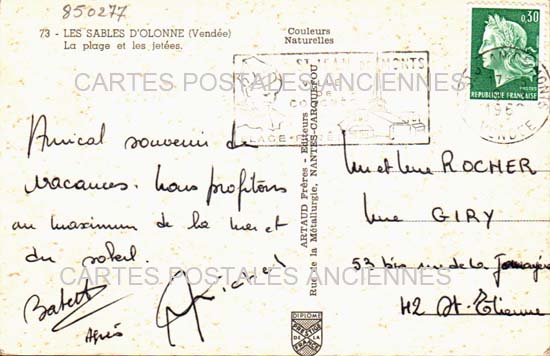 850277
73 - LES SABLES D'OLONNE (Vendée)
La plage et les jetées.
Couleurs
Naturelles
0,30
REPUBLIQUE FRANÇAISE
ST JEAN DE MONTS
CARTES POSTALES ANCIENNES
Amical souvenir de
vacances. Nous profitons
au maximum de la mer et
du soleil.
Babeth
Agnès
Michel
ARTAUD Frères - Editeurs
Rue de la Métallurgie, NANTES-CARQUEFOU
Mr et Mme ROCHER
Mme GIRY
53 bis rue de la
42 St-Etienne
CARTES POSTALES ANCIENNES
DIPLOME
PRESTIGE
DE LA
FRANCE